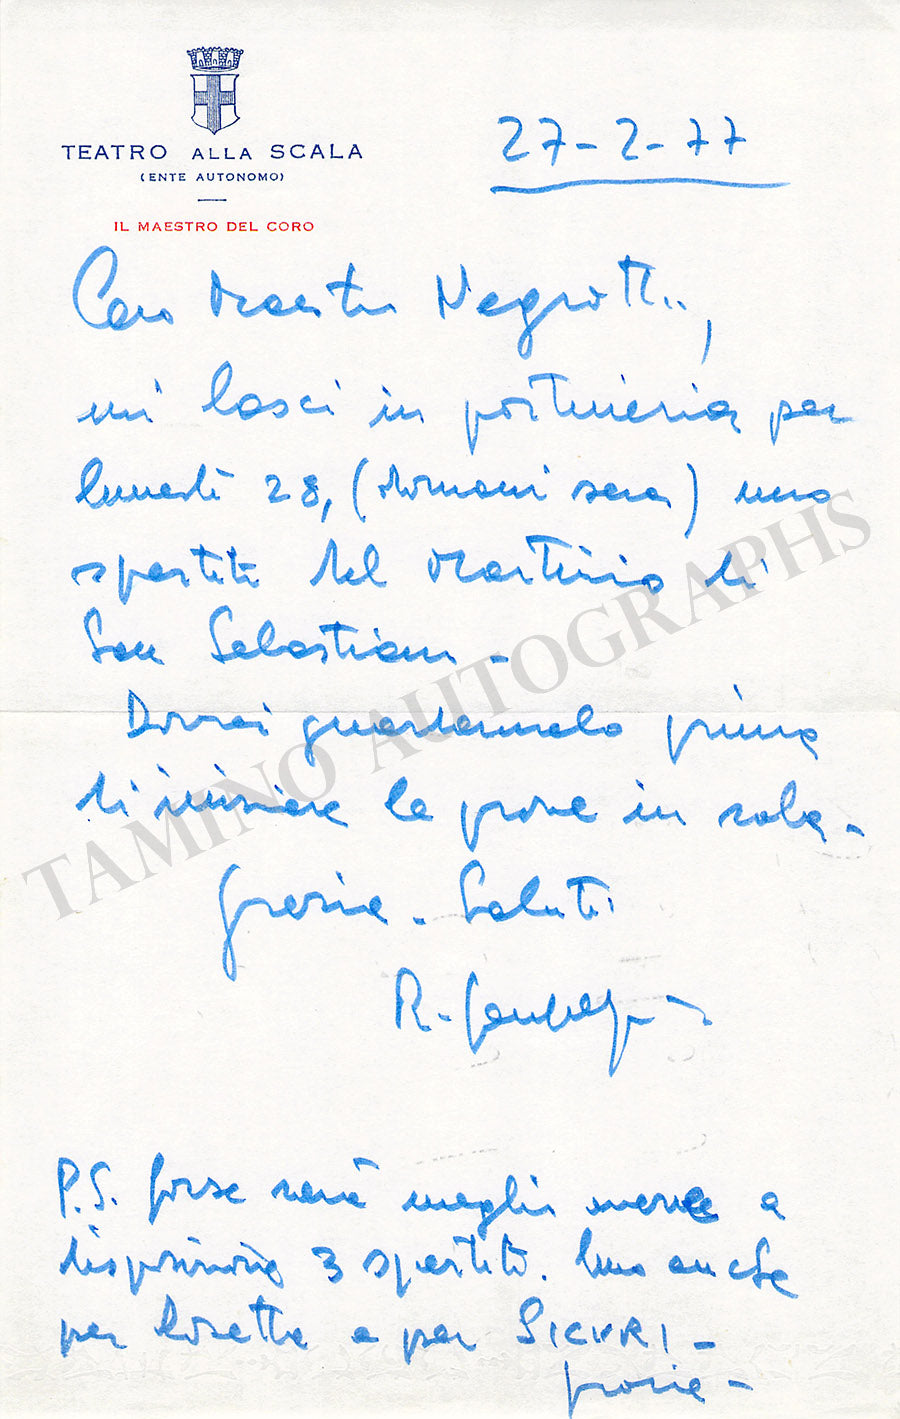 TEATRO ALLA SCALA
(ENTE AUTONOMO)
IL MAESTRO DEL CORO
27-2-77
Caro Maestro Negrotti,
mi lasci in portineria per
lunedì 28, (domani sera) uno
spartito del Martirio di
San Sebastiano -
Dovrei guardarmelo prima
di iniziare le prove in sala -
Grazie - Saluti
R.
P.S. forse sarà meglio avere a
disposizione 3 spartiti. Uno anche
per Rosetta e per SICURI -
grazie -
TAMINO AUTOGRAPHS